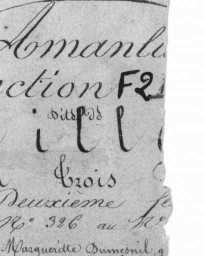 Amanli
ction F2
ill
Trois
Deuxième
N° 326 au N°
Marguerite Dumesnil